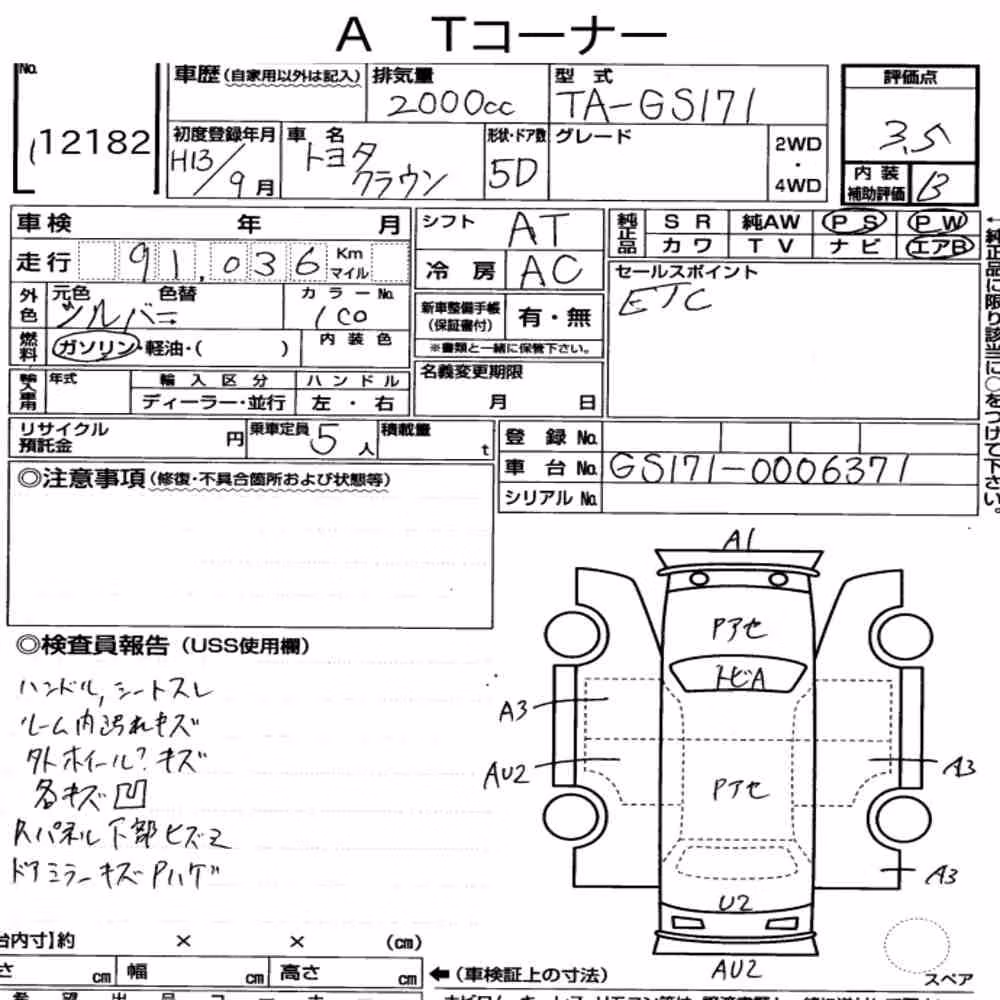 A Tコーナー
No. 車歴(自家用以外は記入) 排気量 型式 評価点
2000cc TA-GS171 3.5
12182
初度登録年月 車名 形状・ドア数 グレード 2WD・4WD 内装補助評価 B
H13/9月 トヨタ クラウン 5D
車検 年 月 シフト AT 純正品 SR 純AW PS PW
カワ TV ナビ エアB
走行 91,036 Km マイル 冷房 AC セールスポイント
ETC
外色 元色 色替 カラーNo. 新車整備手帳(保証書付) 有・無
シルバー 1C0
※書類と一緒に保管下さい。
燃料 ガソリン・軽油・( ) 内装色
名義変更期限
輸入車用 年式 輸入区分 ハンドル
ディーラー・並行 左・右 月 日
リサイクル預託金 円 乗車定員 5人 積載量 t 登録No.
車台No. GS171-0006371
シリアルNo.
←純正品に限り該当に○をつけて下さい。
◎注意事項(修復・不具合箇所および状態等)
◎検査員報告(USS使用欄)
ハンドル,シートスレ
ルーム内汚れキズ
外ホイール?キズ
各キズ凹
Rパネル下部ヒズミ
ドアミラーキズPハゲ
A1
Pアセ
トビA
A3
AU2 A3
Pアセ
A3
U2
AU2
スペア
台内寸】約 × × (cm)
さ cm 幅 cm 高さ cm ←(車検証上の寸法)